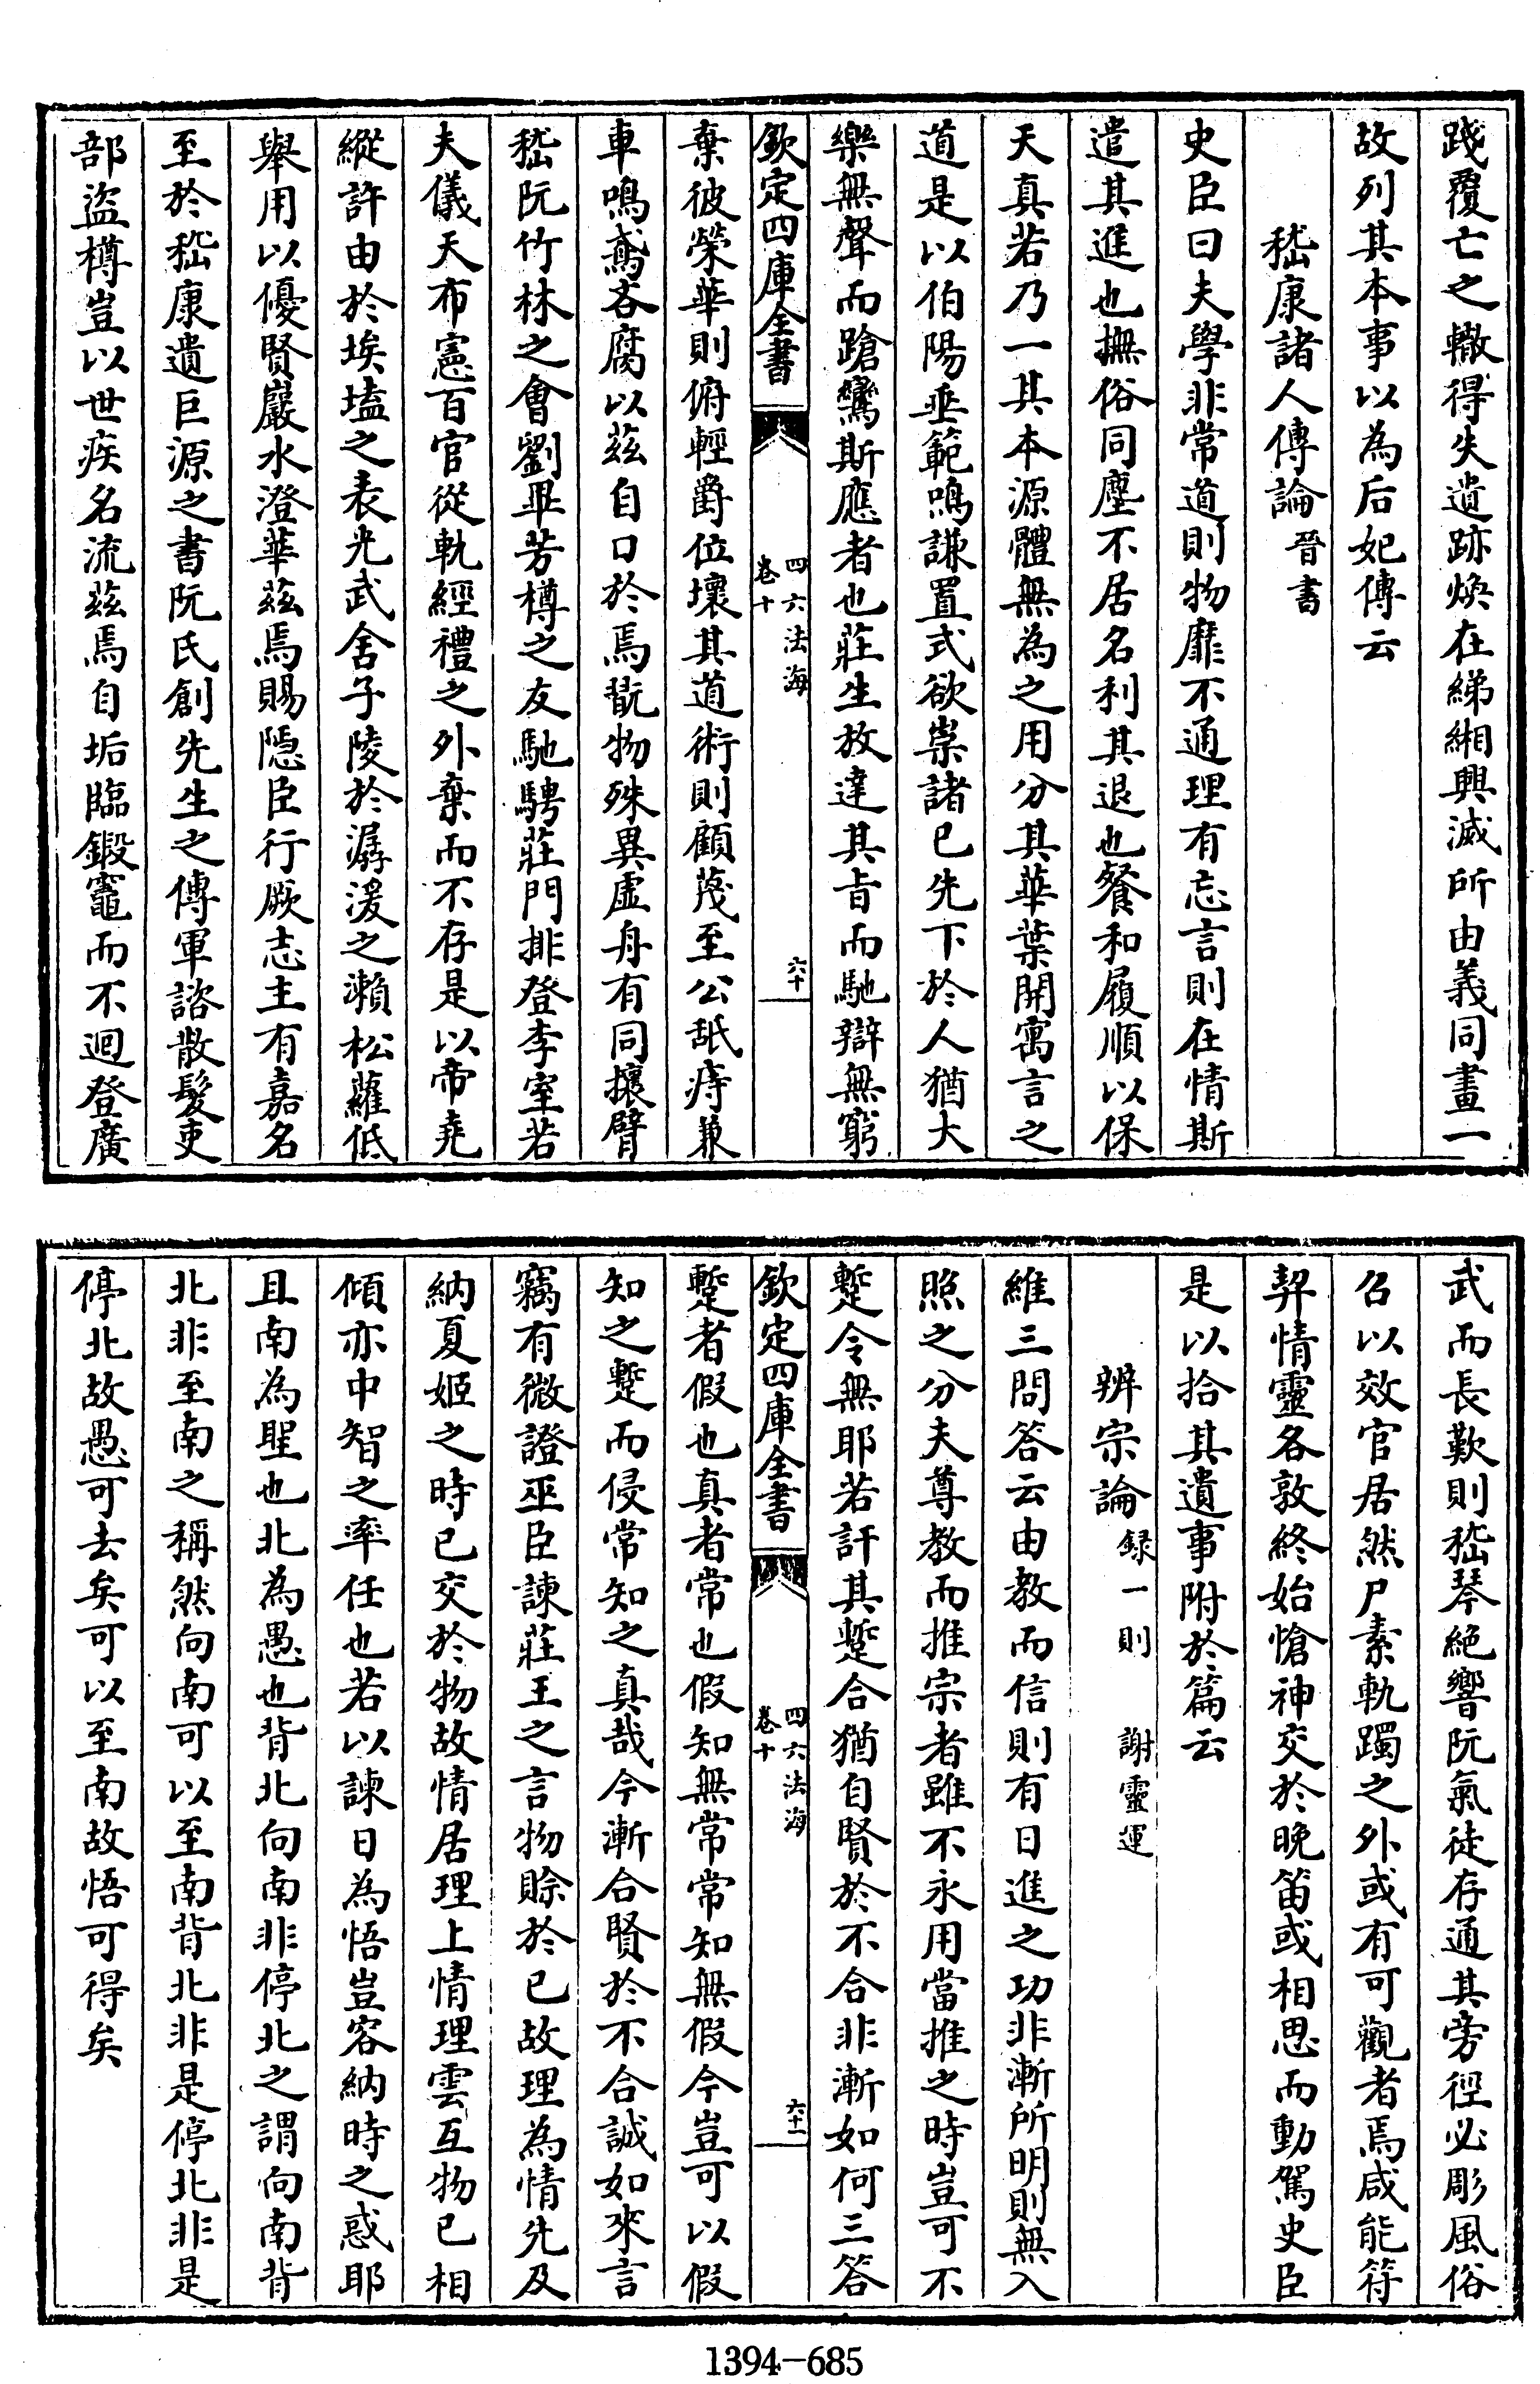 踐覆亡之轍得失遺跡煥在綈緗興滅所由義同畫一
故列其本事以為后妃傳云
嵇康諸人傳論晉書
史臣曰夫學非常道則物靡不通理有忘言則在情斯
遣其進也撫俗同塵不居名利其退也餐和履順以保
天真若乃一其本源體無為之用分其華葉開寓言之
道是以伯陽垂範鳴謙置式欲崇諸已先下於人猶大
樂無聲而蹌鸞斯應者也莊生放達其旨而馳辯無窮
欽定四庫全書 四六法海 卷十 六十
棄彼榮華則俯輕爵位壞其道術則顧蔑至公舐痔兼
車鳴鳶吝腐以茲自口於焉翫物殊異虛舟有同攘臂
嵇阮竹林之會劉畢芳樽之友馳騁莊門排登李室若
夫儀天布憲百官從軌經禮之外棄而不存是以帝堯
縱許由於埃壒之表光武舍子陵於潺湲之瀨松蘿低
舉用以優賢巖水澄華茲焉賜隱臣行厥志主有嘉名
至於嵇康遺巨源之書阮氏創先生之傳軍諮散髮吏
部盜樽豈以世疾名流茲焉自垢臨鍛竈而不迴登廣
武而長歎則嵇琴絕響阮氣徒存通其旁徑必彫風俗
召以效官居然尸素軌躅之外或有可觀者焉咸能符
契情靈各敦終始愴神交於晚笛或相思而動駕史臣
是以拾其遺事附於篇云
辨宗論錄一則 謝靈運
維三問答云由教而信則有日進之功非漸所明則無入
照之分夫尊教而推宗者雖不永用當推之時豈可不
蹔令無耶若許其蹔合猶自賢於不合非漸如何三答
欽定四庫全書 四六法海 卷十 六十一
蹔者假也真者常也假知無常常知無假今豈可以假
知之蹔而侵常知之真哉今漸合賢於不合誠如來言
竊有微證巫臣諫莊王之言物賒於已故理為情先及
納夏姬之時已交於物故情居理上情理雲互物已相
傾亦中智之率任也若以諫日為悟豈容納時之惑耶
且南為聖也北為愚也背北向南非停北之謂向南背
北非至南之稱然向南可以至南背北非是停北非是
停北故愚可去矣可以至南故悟可得矣
1394—685